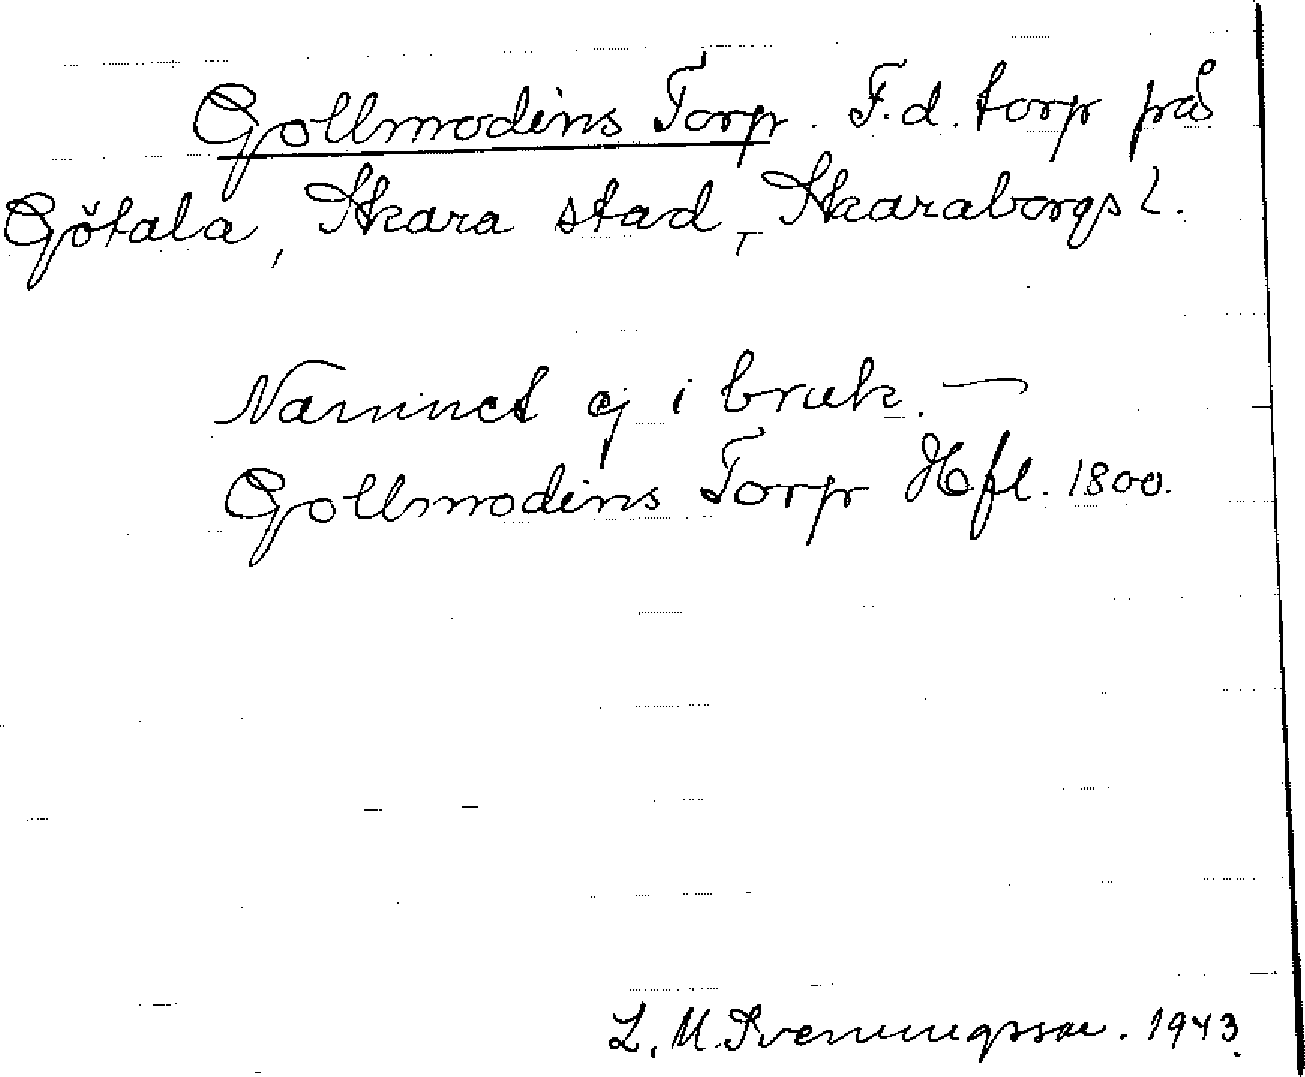 Gollmodins Torp. F.d. torp på
Götala, Skara stad, Skaraborgs l.
Namnet ej i bruk. —
Gollmodins Torp Hfl. 1800.
L. M. Svenningsson. 1943.